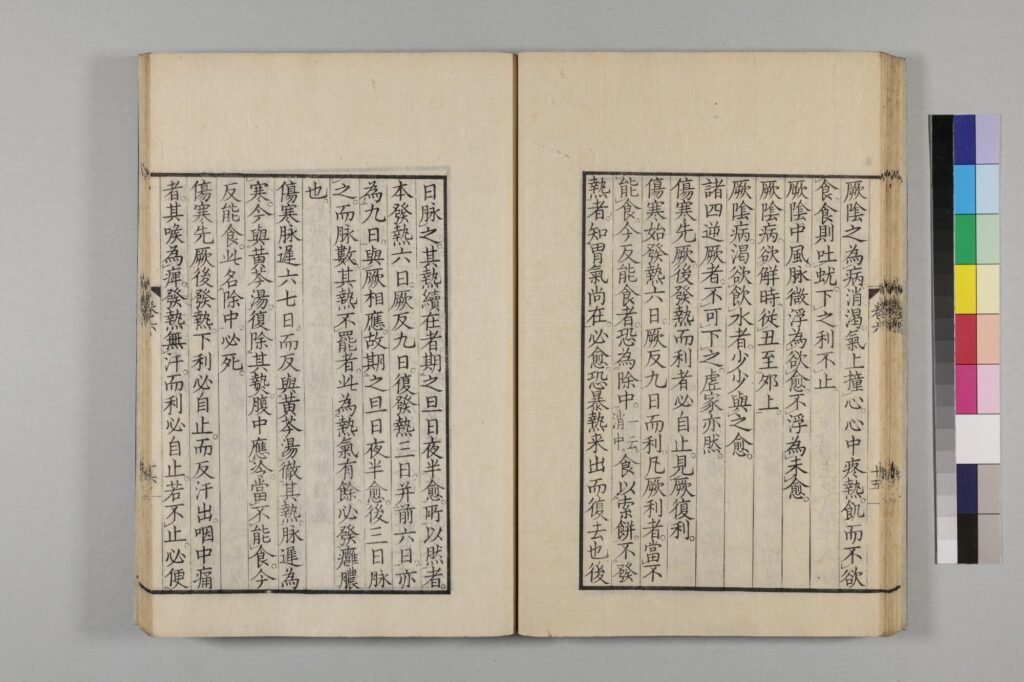 厥陰之為病消渴氣上撞心心中疼熱飢而不欲
食食則吐蚘下之利不止
厥陰中風脉微浮為欲愈不浮為未愈
厥陰病欲解時從丑至夘上
厥陰病渴欲飲水者少少與之愈
諸四逆厥者不可下之虛家亦然
傷寒先厥後發熱而利者必自止見厥復利
傷寒始發熱六日厥反九日而利凡厥利者當不
能食今反能食者恐為除中一云消中食以索餅不發
熱者知胃氣尚在必愈恐暴熱来出而復去也後
日脉之其熱續在者期之旦日夜半愈所以然者
本發熱六日厥反九日復發熱三日并前六日亦
為九日與厥相應故期之旦日夜半愈後三日脉
之而脉數其熱不罷者此為熱氣有餘必發癰膿
也
傷寒脉遲六七日而反與黃芩湯徹其熱脉遲為
寒今與黃芩湯復除其熱腹中應冷當不能食今
反能食此名除中必死
傷寒先厥後發熱下利必自止而反汗出咽中痛
者其喉為痺發熱無汗而利必自止若不止必便